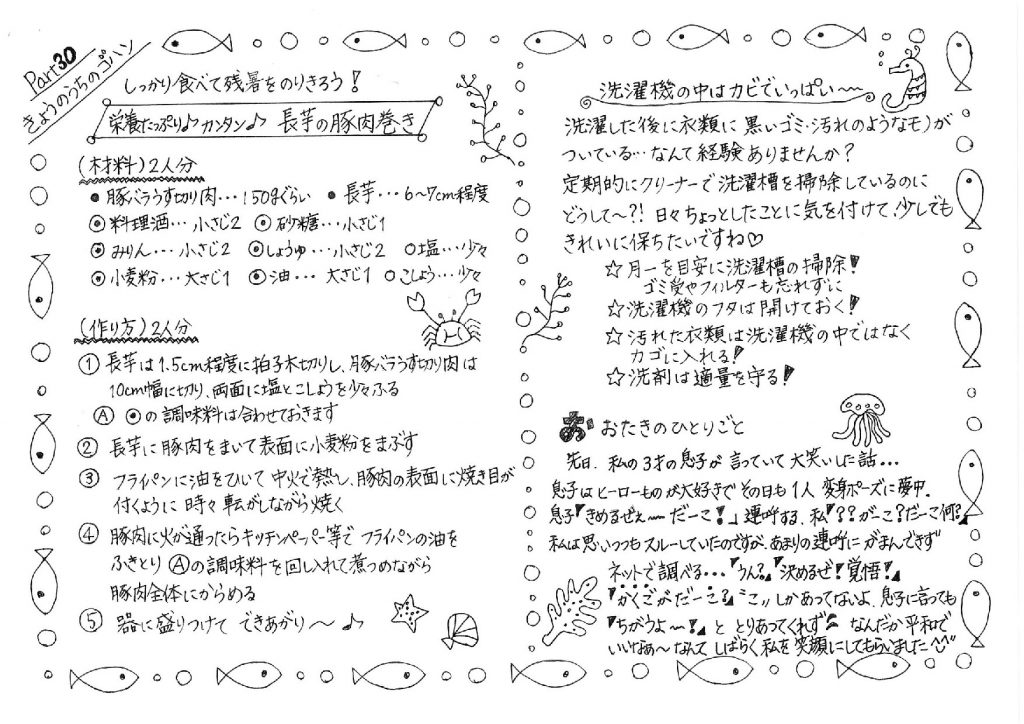 Part30
きょうのうちのゴハン
しっかり食べて残暑をのりきろう!
栄養たっぷり♪カンタン♪ 長芋の豚肉巻き
(材料)2人分
●豚バラうす切り肉…150gぐらい ●長芋…6〜7cm程度
◉料理酒…小さじ2 ◉砂糖…小さじ1
◉みりん…小さじ2 ◉しょうゆ…小さじ2 ○塩…少々
◉小麦粉…大さじ1 ◉油…大さじ1 ○こしょう…少々
(作り方)2人分
① 長芋は1.5cm程度に拍子木切りし、豚バラうす切り肉は
10cm幅に切り、両面に塩とこしょうを少々ふる
Ⓐ ◉の調味料は合わせておきます
② 長芋に豚肉をまいて表面に小麦粉をまぶす
③ フライパンに油をひいて中火で熱し、豚肉の表面に焼き目が
付くように時々転がしながら焼く
④ 豚肉に火が通ったらキッチンペーパー等でフライパンの油を
ふきとりⒶの調味料を回し入れて煮つめながら
豚肉全体にからめる
⑤ 器に盛りつけてできあがり〜♪
洗濯機の中はカビでいっぱい〜
洗濯した後に衣類に黒いゴミ・汚れのようなモノが
ついている…なんて経験ありませんか?
定期的にクリーナーで洗濯槽を掃除しているのに
どうして〜?!日々ちょっとしたことに気を付けて、少しでも
きれいに保ちたいですね♡
☆月一を目安に洗濯槽の掃除!
ゴミ受やフィルターも忘れずに
☆洗濯機のフタは開けておく!
☆汚れた衣類は洗濯機の中ではなく
カゴに入れる!
☆洗剤は適量を守る!
お おたきのひとりごと
先日、私の3才の息子が言っていて大笑いした話…
息子はヒーローものが大好きでその日も1人変身ポーズに夢中。
息子『きめるぜぇ〜だーこ!』連呼する、私『??がーこ?だーこ何?』
私は思いつつもスルーしていたのですが、あまりの連呼にがまんできず
ネットで調べる…『うん?』『決めるぜ!覚悟!』
『かくごがだーこ?』"こ"しかあってないよ、息子に言っても
『ちがうよ〜!』ととりあってくれず なんだか平和で
いいなぁ〜なんてしばらく私を笑顔にしてもらいました^^